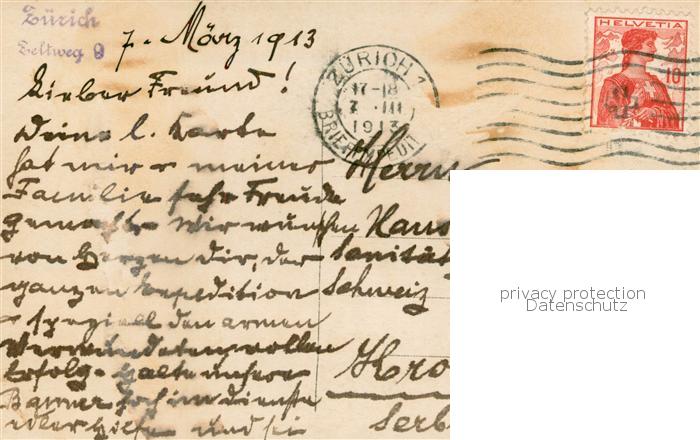 Zürich
Zeltweg 9
7. März 1913
Lieber Freund!
Deine l. Karte
hat mir & meiner
Familie sehr Freude
gemacht. Wir wünschen
von Herzen Dir, der
ganzen Expedition
& speziell den armen
Verwundeten vollen
Erfolg. Halte unsere
Banner hoch im Dienste
edler Hilfe und sei
HELVETIA
10
ZÜRICH 1
17-18
7. III
1913
BRIEFVERSAND
Herrn
Hans
Sanität
Schweiz
Kro
Serb
privacy protection
Datenschutz